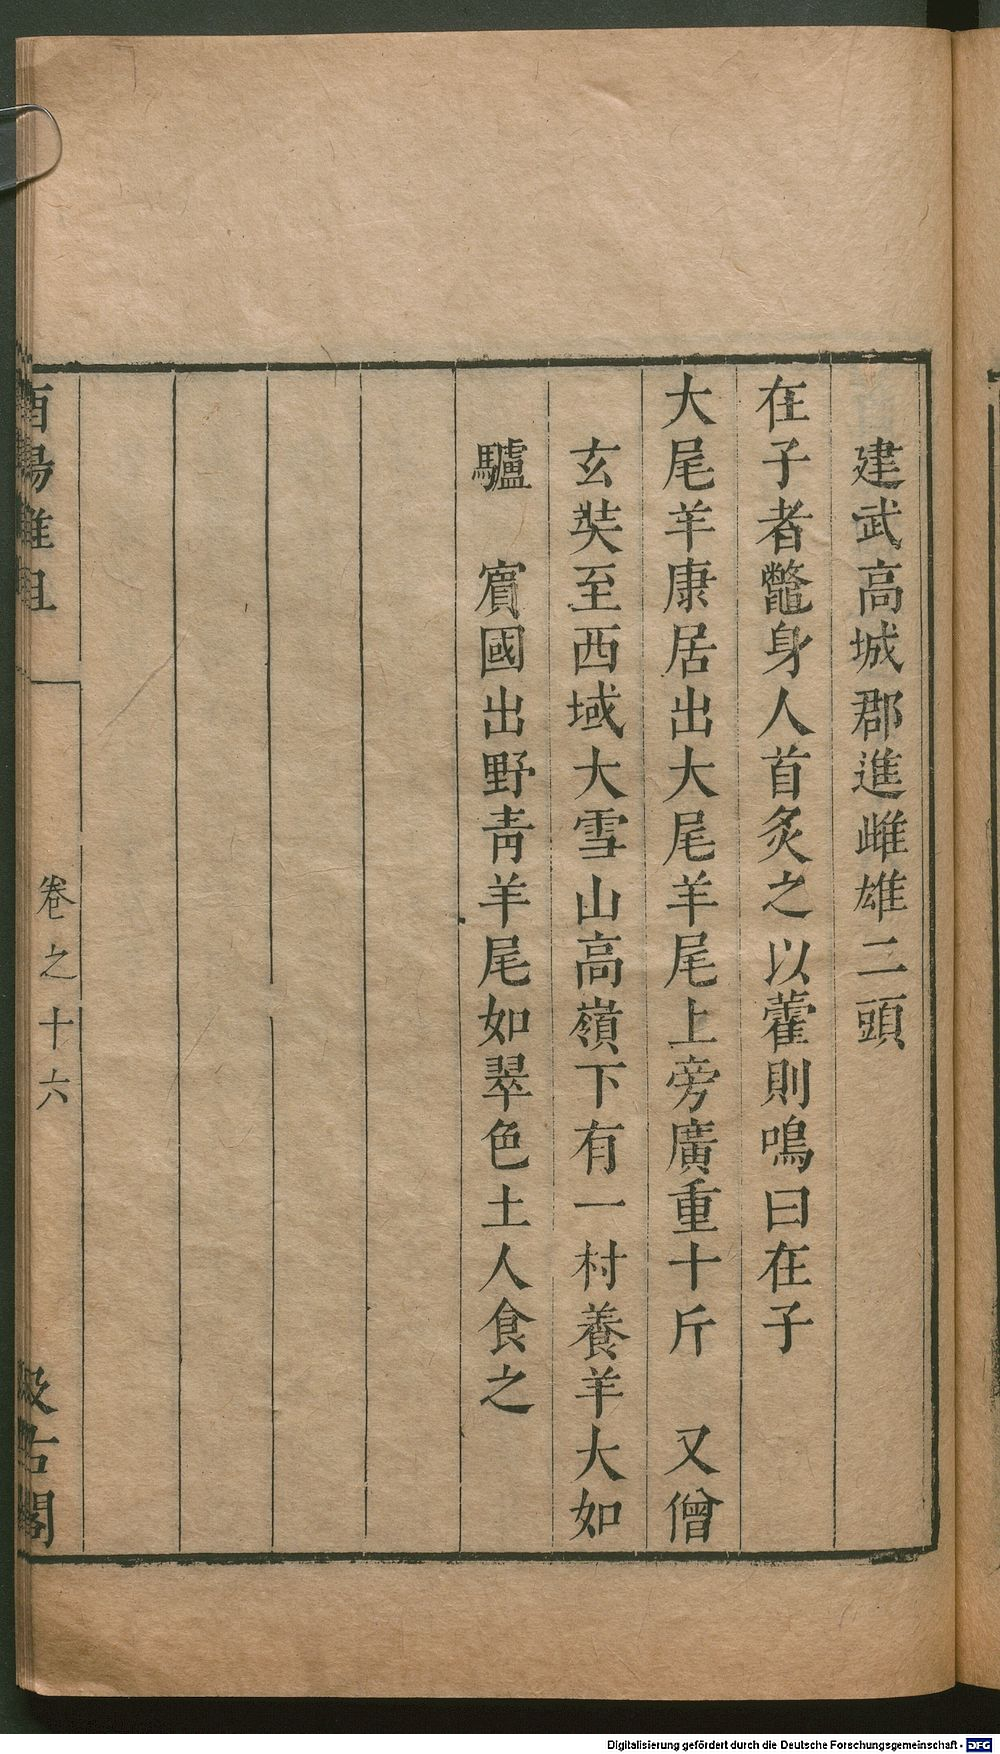 建武高城郡進雌雄二頭
在子者鼈身人首炙之以藿則鳴曰在子
大尾羊康居出大尾羊尾上旁廣重十斤　又僧
玄奘至西域大雪山高嶺下有一村養羊大如
驢　賔國出野青羊尾如翠色土人食之
酉陽雜俎
卷之十六
汲古閣
Digitalisierung gefördert durch die Deutsche Forschungsgemeinschaft - DFG